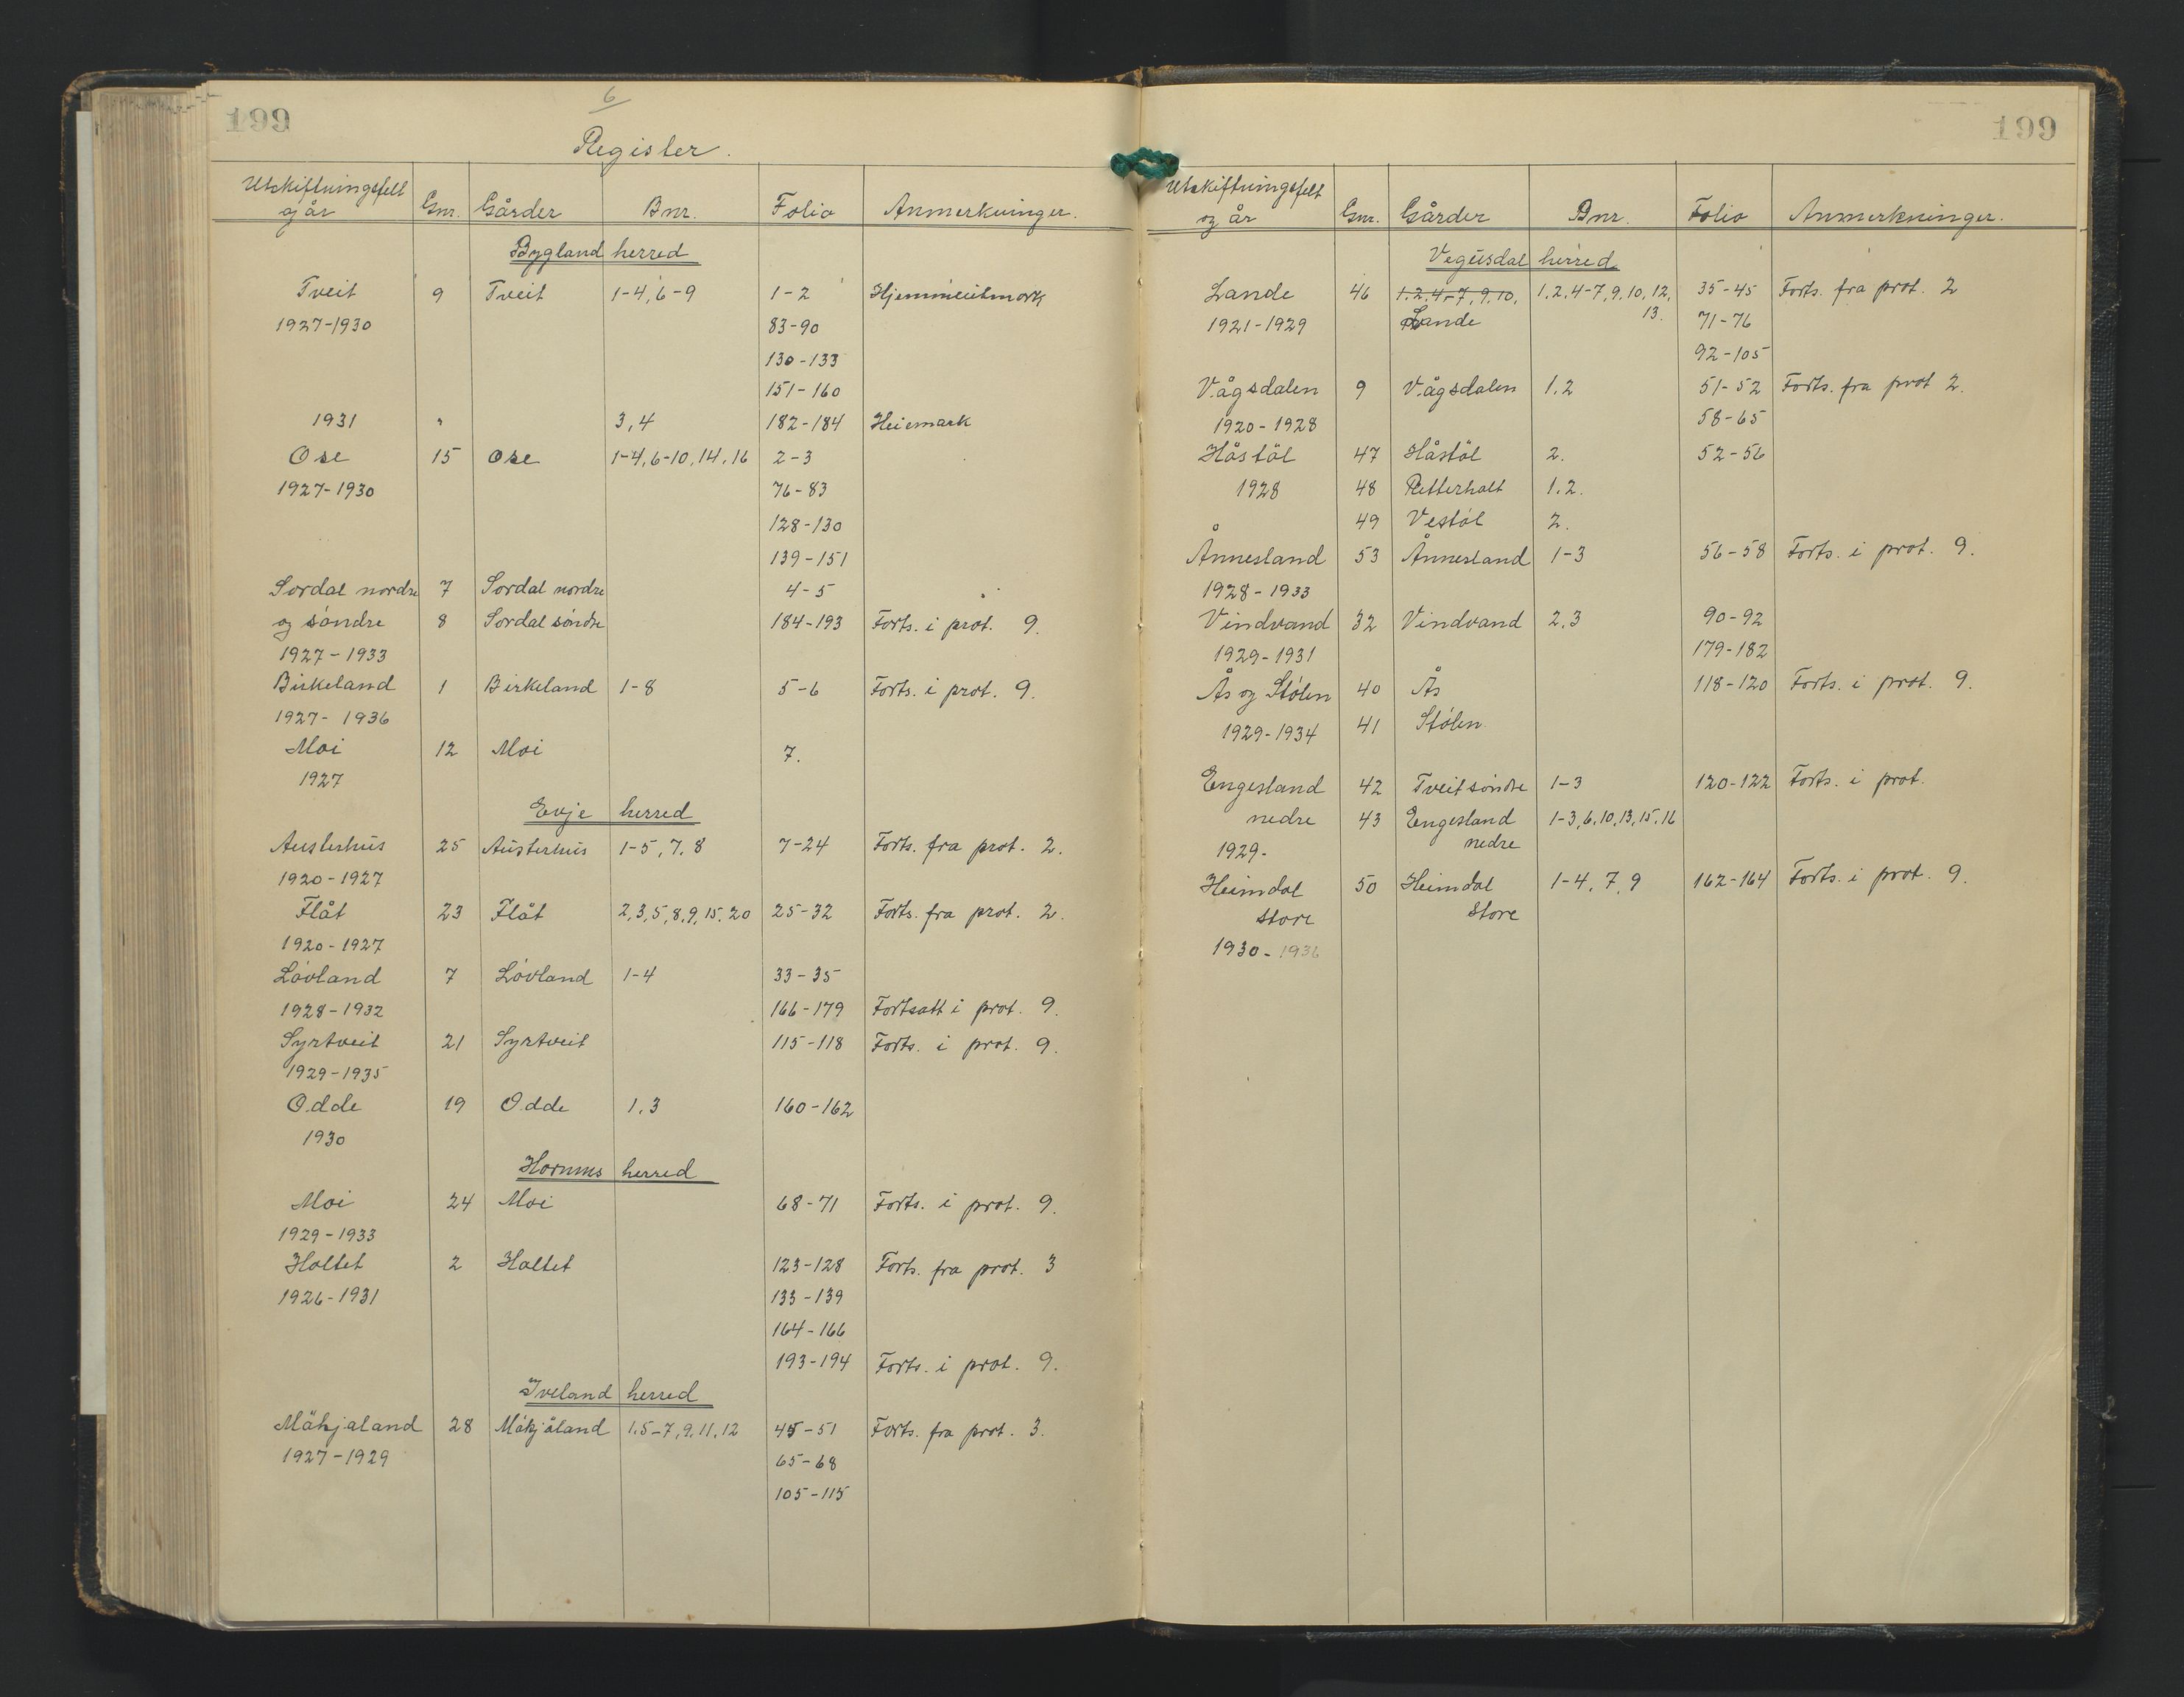 199
6
Register.
Utskiftningsfelt og år | Gnr. | Gårder | Bnr. | Folio | Anmerkninger.
Bygland herred
Tveit | 9 | Tveit | 1-4, 6-9 | 1-2 | Hjemmeutmark
1927-1930 | 83-90
130-133
151-160
1931 | " | 3, 4 | 182-184 | Heiemark
Ose | 15 | Ose | 1-4, 6-10, 14, 16 | 2-3
1927-1930 | 76-83
128-130
139-151
Sordal nordre | 7 | Sordal nordre | 4-5
og söndre | 8 | Sordal söndre | 184-193 | Forts. i prot. 9.
1927-1933
Birkeland | 1 | Birkeland | 1-8 | 5-6 | Forts. i prot. 9.
1927-1936
Moi | 12 | Moi | 7.
1927
Evje herred
Austerhus | 25 | Austerhus | 1-5, 7, 8 | 7-24 | Forts. fra prot. 2.
1920-1927
Flåt | 23 | Flåt | 2, 3, 5, 8, 9, 15, 20 | 25-32 | Forts. fra prot. 2.
1920-1927
Lövland | 7 | Lövland | 1-4 | 33-35
1928-1932 | 166-179 | Fortsatt i prot. 9.
Syrtveit | 21 | Syrtveit | 115-118 | Forts. i prot. 9.
1929-1935
Odde | 19 | Odde | 1, 3 | 160-162
1930
Hornnes herred
Moi | 24 | Moi | 68-71 | Forts. i prot. 9.
1929-1933
Holtet | 2 | Holtet | 123-128 | Forts. fra prot. 3
1926-1931 | 133-139
164-166
193-194 | Forts. i prot. 9.
Iveland herred
Måkjåland | 28 | Måkjåland | 1, 5-7, 9, 11, 12 | 45-51 | Forts. fra prot. 3.
1927-1929 | 65-68
105-115
199
Utskiftningsfelt og år | Gnr. | Gårder | Bnr. | Folio | Anmerkninger.
Vegusdal herred
Lande | 46 | 1, 2, 4-7, 9, 10, | 1, 2, 4-7, 9, 10, 12, 13. | 35-45 | Forts. fra prot. 2
1921-1929 | Lande | 71-76
92-105
Vågsdalen | 9 | Vågsdalen | 1, 2 | 51-52 | Forts. fra prot 2.
1920-1928 | 58-65
Håstöl | 47 | Håstöl | 2. | 52-56
1928 | 48 | Retterholt | 1, 2.
49 | Vestöl | 2.
Ånnesland | 53 | Ånnesland | 1-3 | 56-58 | Forts. i prot. 9.
1928-1933
Vindvand | 32 | Vindvand | 2, 3 | 90-92
1929-1931 | 179-182
Ås og Stölen | 40 | Ås | 118-120 | Forts. i prot. 9.
1929-1934 | 41 | Stölen
Engesland | 42 | Tveit söndre | 1-3 | 120-122 | Forts. i prot.
nedre | 43 | Engesland | 1-3, 6, 10, 13, 15, 16
1929- | nedre
Heimdal | 50 | Heimdal | 1-4, 7, 9 | 162-164 | Forts. i prot. 9.
store | store
1930-1936